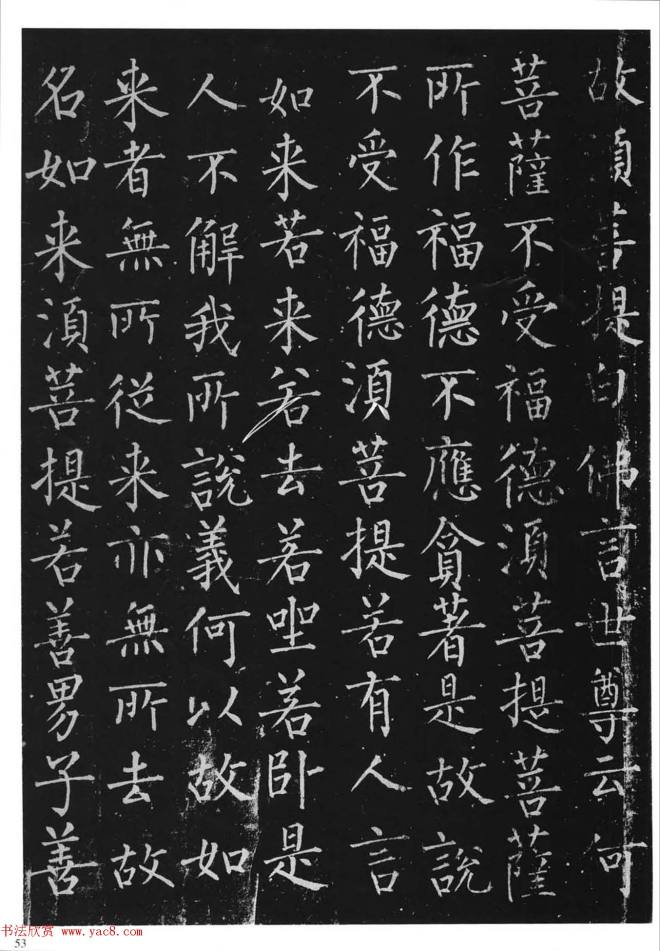 故須菩提白佛言世尊云何
菩薩不受福德須菩提菩薩
所作福德不應貪著是故說
不受福德須菩提若有人言
如来若来若去若坐若卧是
人不解我所說義何以故如
来者無所從来亦無所去故
名如来須菩提若善男子善
书法欣赏 www.yac8.com
53